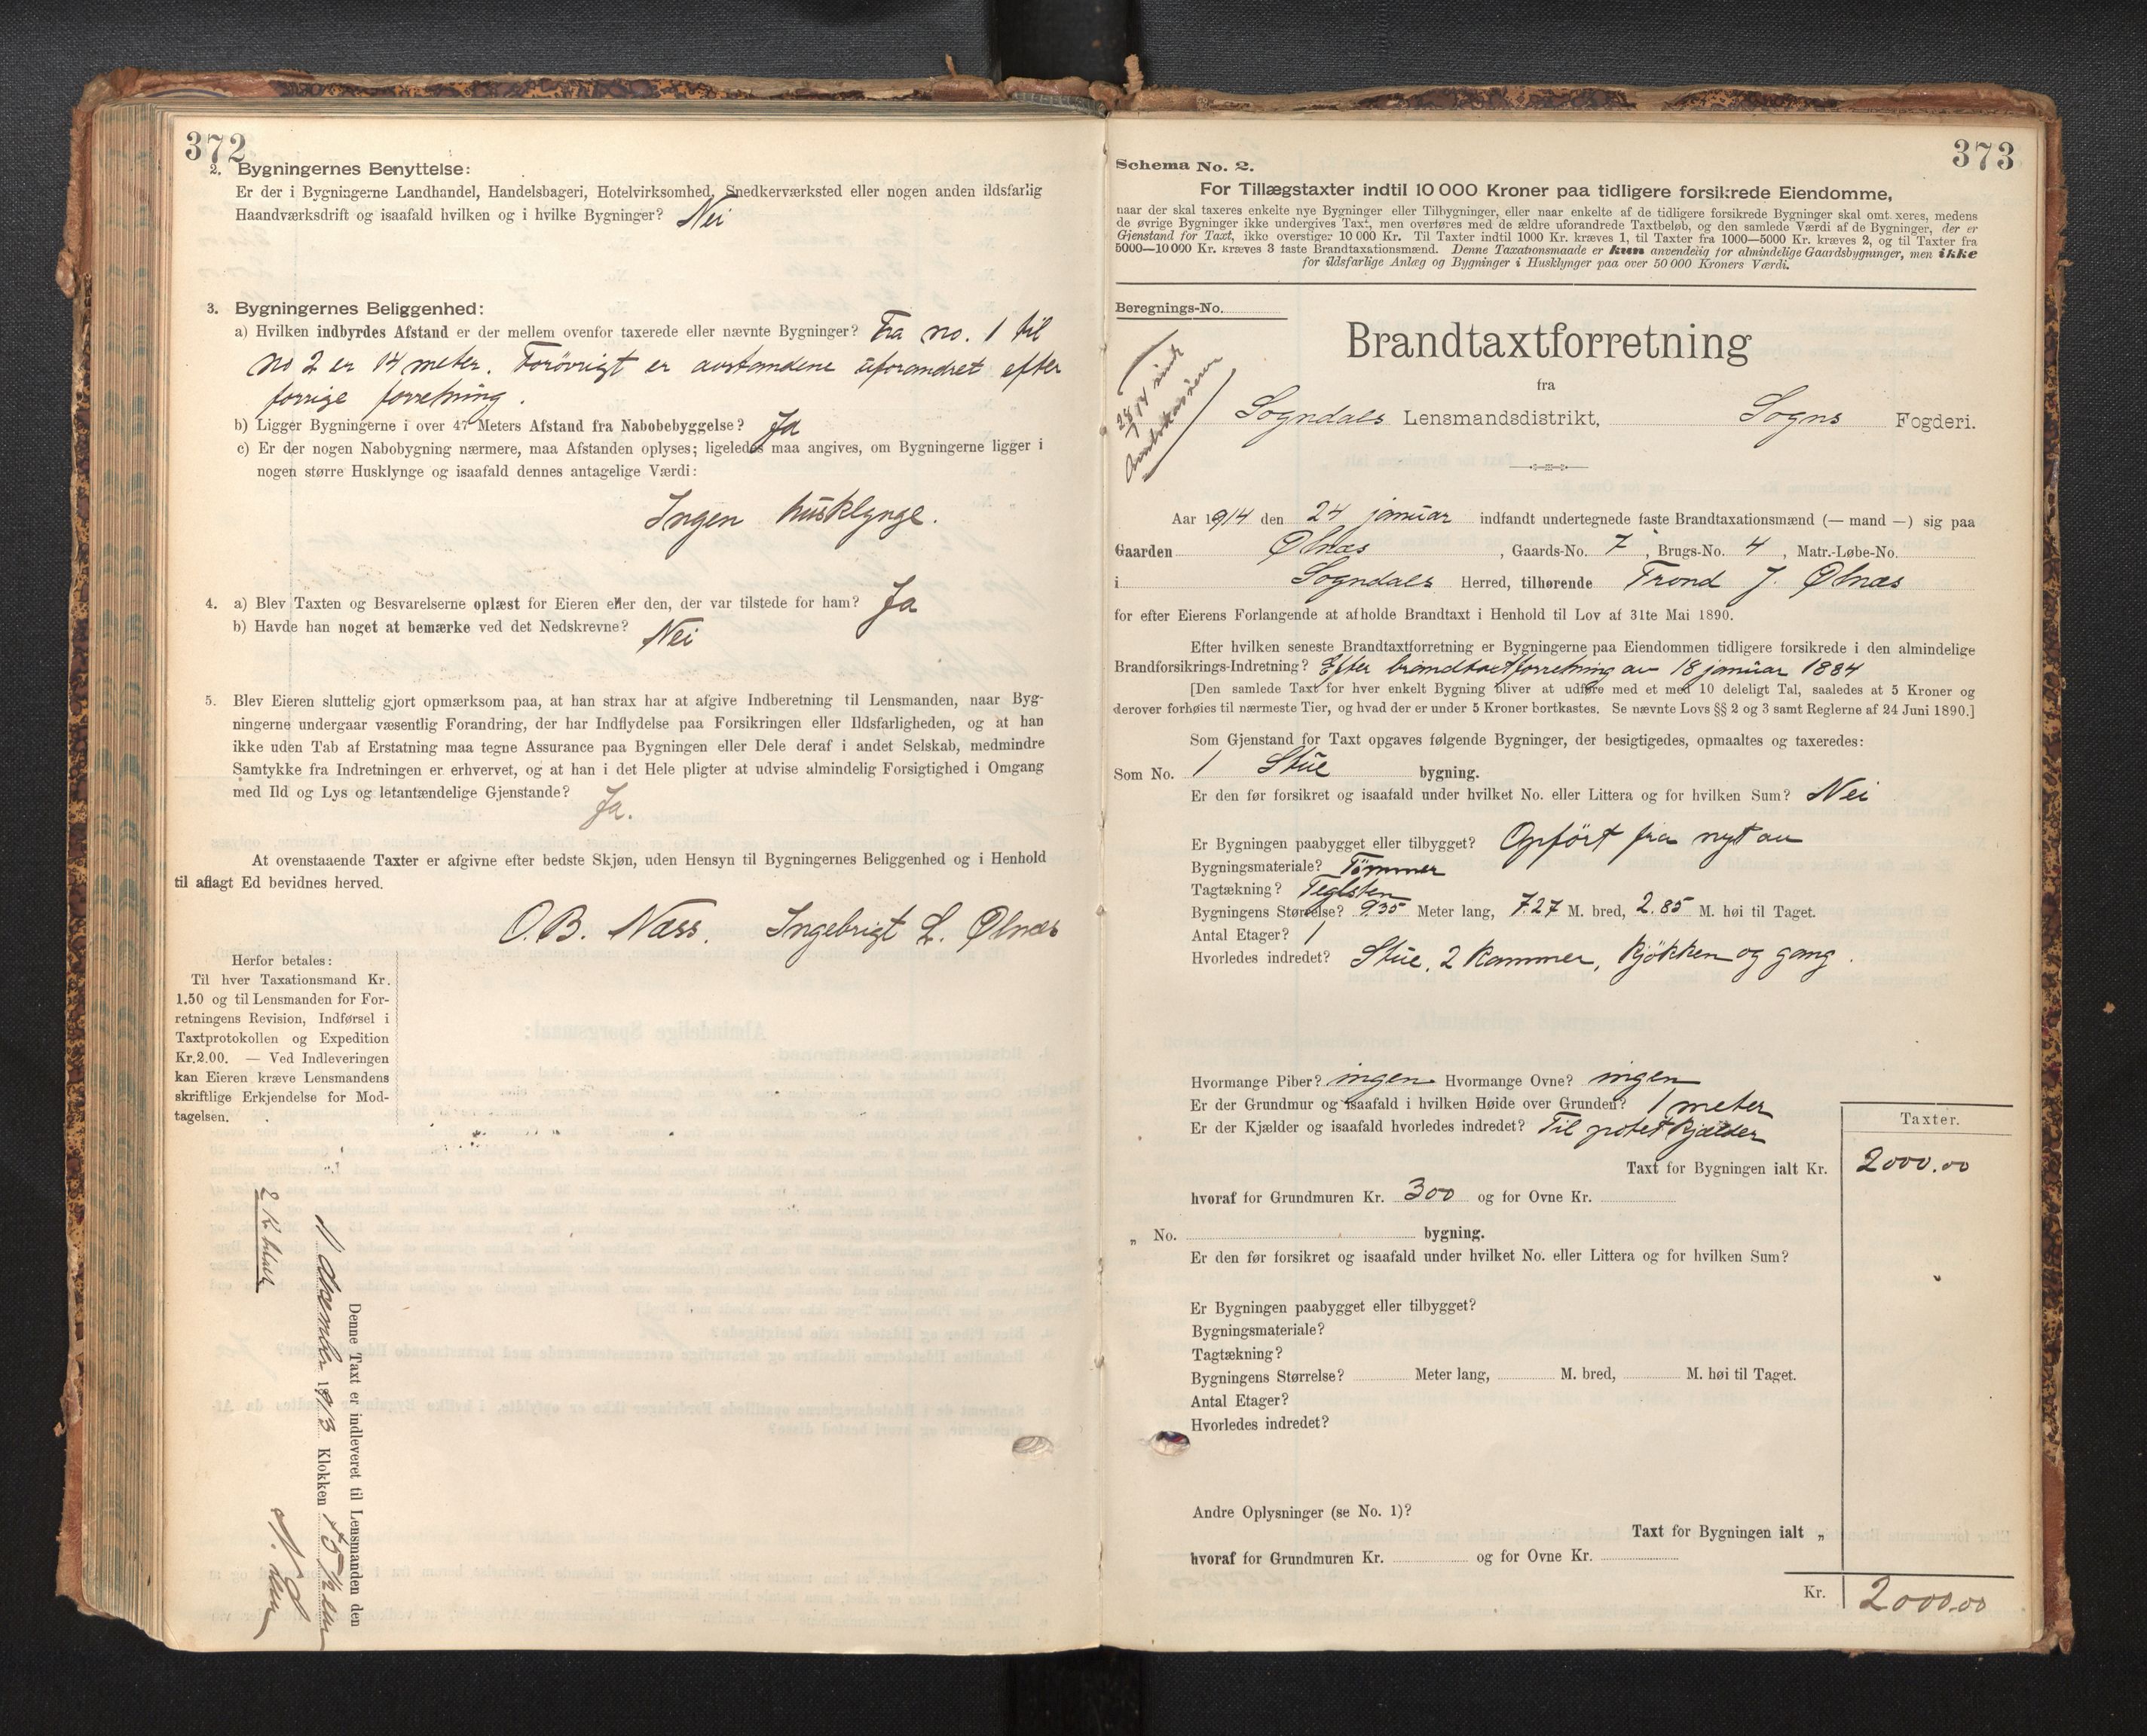 372
2. Bygningernes Benyttelse:
Er der i Bygningerne Landhandel, Handelsbageri, Hotelvirksomhed, Snedkerværksted eller nogen anden ildsfarlig
Haandværksdrift og isaafald hvilken og i hvilke Bygninger? Nei
3. Bygningernes Beliggenhed:
a) Hvilken indbyrdes Afstand er der mellem ovenfor taxerede eller nævnte Bygninger? Fra no. 1 til
no 2 er 14 meter. Forøvrigt er avstandene uforandret efter
forrige forretning.
b) Ligger Bygningerne i over 47 Meters Afstand fra Nabobebyggelse? Ja
c) Er der nogen Nabobygning nærmere, maa Afstanden oplyses; ligeledes maa angives, om Bygningerne ligger i
nogen større Husklynge og isaafald dennes antagelige Værdi:
Ingen husklynge.
4. a) Blev Taxten og Besvarelserne oplæst for Eieren eller den, der var tilstede for ham? Ja
b) Havde han noget at bemærke ved det Nedskrevne? Nei
5. Blev Eieren sluttelig gjort opmærksom paa, at han strax har at afgive Indberetning til Lensmanden, naar Byg-
ningerne undergaar væsentlig Forandring, der har Indflydelse paa Forsikringen eller Ildsfarligheden, og at han
ikke uden Tab af Erstatning maa tegne Assurance paa Bygningen eller Dele deraf i andet Selskab, medmindre
Samtykke fra Indretningen er erhvervet, og at han i det Hele pligter at udvise almindelig Forsigtighed i Omgang
med Ild og Lys og letantændelige Gjenstande? Ja.
At ovenstaaende Taxter er afgivne efter bedste Skjøn, uden Hensyn til Bygningernes Beliggenhed og i Henhold
til aflagt Ed bevidnes herved.
O.B. Næss. Ingebrigt L. Ølnæs
Herfor betales:
Til hver Taxationsmand Kr.
1.50 og til Lensmanden for For-
retningens Revision, Indførsel i
Taxtprotokollen og Expedition
Kr. 2.00. — Ved Indleveringen
kan Eieren kræve Lensmandens
skriftlige Erkjendelse for Mod-
tagelsen.
Denne Taxt er indleveret til Lensmanden den
11 december 1913 Klokken
373
Schema No. 2.
For Tillægstaxter indtil 10 000 Kroner paa tidligere forsikrede Eiendomme,
naar der skal taxeres enkelte nye Bygninger eller Tilbygninger, eller naar enkelte af de tidligere forsikrede Bygninger skal omt xeres, medens
de øvrige Bygninger ikke undergives Taxt, men overføres med de ældre uforandrede Taxtbeløb, og den samlede Værdi af de Bygninger, der er
Gjenstand for Taxt, ikke overstiger 10 000 Kr. Til Taxter indtil 1000 Kr. kræves 1, til Taxter fra 1000—5000 Kr. kræves 2, og til Taxter fra
5000—10 000 Kr. kræves 3 faste Brandtaxationsmænd. Denne Taxationsmaade er kun anvendelig for almindelige Gaardsbygninger, men ikke
for ildsfarlige Anlæg og Bygninger i Husklynger paa over 50 000 Kroners Værdi.
Beregnings-No.
Brandtaxtforretning
fra
Sogndals Lensmandsdistrikt, Sogns Fogderi.
Aar 1914 den 24 januar indfandt undertegnede faste Brandtaxationsmænd (— mand —) sig paa
Gaarden Ølnæs, Gaards-No. 7, Brugs-No. 4, Matr.-Løbe-No.
i Sogndals Herred, tilhørende Trond J. Ølnæs
for efter Eierens Forlangende at afholde Brandtaxt i Henhold til Lov af 31te Mai 1890.
Efter hvilken seneste Brandtaxtforretning er Bygningerne paa Eiendommen tidligere forsikrede i den almindelige
Brandforsikrings-Indretning? Efter brandtaxtforretning av 18 januar 1884
[Den samlede Taxt for hver enkelt Bygning bliver at udføre med et med 10 deleligt Tal, saaledes at 5 Kroner og
derover forhøies til nærmeste Tier, og hvad der er under 5 Kroner bortkastes. Se nævnte Lovs §§ 2 og 3 samt Reglerne af 24 Juni 1890.]
Som Gjenstand for Taxt opgaves følgende Bygninger, der besigtigedes, opmaaltes og taxeredes:
Som No. 1 Stue bygning.
Er den før forsikret og isaafald under hvilket No. eller Littera og for hvilken Sum? Nei
Er Bygningen paabygget eller tilbygget? Opført fra nyt av
Bygningsmateriale? Tømmer
Tagtækning? Teglsten
Bygningens Størrelse? 9.35 Meter lang, 7.27 M. bred, 2.85 M. høi til Taget.
Antal Etager? 1
Hvorledes indredet? Stue, 2 kammer, kjøkken og gang.
Hvormange Piber? ingen Hvormange Ovne? ingen
Er der Grundmur og isaafald i hvilken Høide over Grunden? 1 meter
Er der Kjælder og isaafald hvorledes indredet? Til potetkjælder
Taxter.
Taxt for Bygningen ialt Kr. 2000.00
hvoraf for Grundmuren Kr. 300 og for Ovne Kr.
„ No. bygning.
Er den før forsikret og isaafald under hvilket No. eller Littera og for hvilken Sum?
Er Bygningen paabygget eller tilbygget?
Bygningsmateriale?
Tagtækning?
Bygningens Størrelse? Meter lang, M. bred, M. høi til Taget.
Antal Etager?
Hvorledes indredet?
Andre Oplysninger (se No. 1)?
Taxt for Bygningen ialt „
hvoraf for Grundmuren Kr. og for Ovne Kr.
Kr. 2000.00